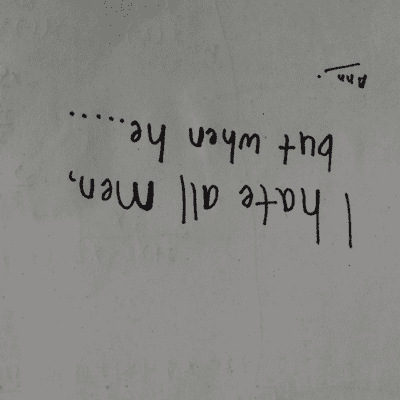 I hate all men,
but when he.....
Ann.